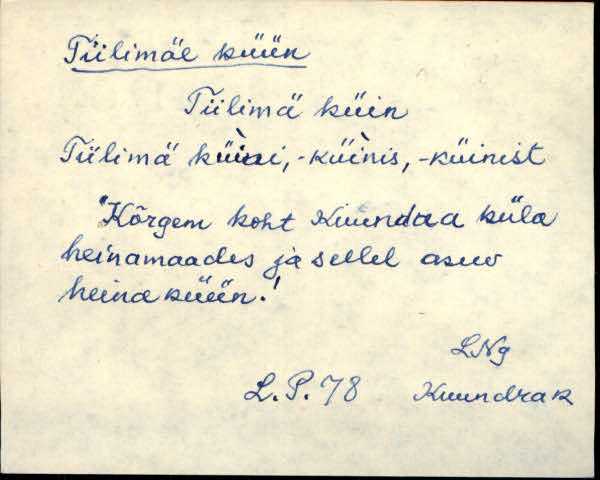 Tiilimäe küün
Tiilimä küin
Tiilimä küìni, -küìnis, -küinist
"Kõrgem koht Kuundra küla
heinamaades ja sellel asuv
heinaküün."
LNg
L.P. 78 Kuundrak